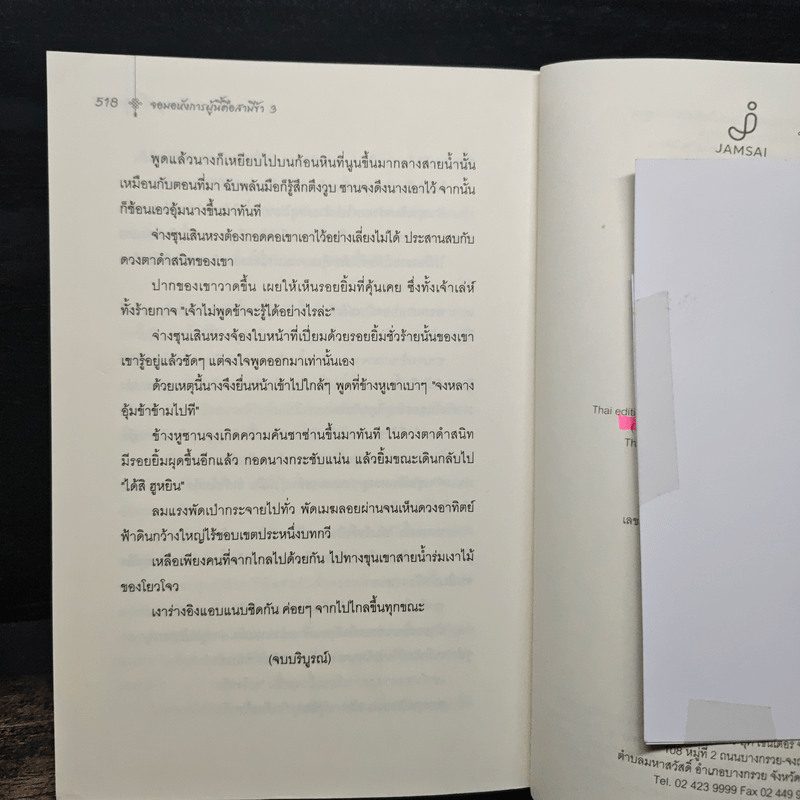 518 จอมอหังการผู้นี้คือสามีข้า 3
พูดแล้วนางก็เหยียบไปบนก้อนหินที่นูนขึ้นมากลางสายน้ำนั้น
เหมือนกับตอนที่มา ฉับพลันมือก็รู้สึกตึงวูบ ซานจงดึงนางเอาไว้ จากนั้น
ก็ช้อนเอวอุ้มนางขึ้นมาทันที
จ่างซุนเสินหรงต้องกอดคอเขาเอาไว้อย่างเลี่ยงไม่ได้ ประสานสบกับ
ดวงตาดำสนิทของเขา
ปากของเขาวาดขึ้น เผยให้เห็นรอยยิ้มที่คุ้นเคย ซึ่งทั้งเจ้าเล่ห์
ทั้งร้ายกาจ "เจ้าไม่พูดข้าจะรู้ได้อย่างไรล่ะ"
จ่างซุนเสินหรงจ้องใบหน้าที่เปี่ยมด้วยรอยยิ้มชั่วร้ายนั้นของเขา
เขารู้อยู่แล้วชัดๆ แต่จงใจพูดออกมาเท่านั้นเอง
ด้วยเหตุนี้นางจึงยื่นหน้าเข้าไปใกล้ๆ พูดที่ข้างหูเขาเบาๆ "จงหลาง
อุ้มข้าข้ามไปที"
ข้างหูซานจงเกิดความคันชาซ่านขึ้นมาทันที ในดวงตาดำสนิท
มีรอยยิ้มผุดขึ้นอีกแล้ว กอดนางกระชับแน่น แล้วยิ้มขณะเดินกลับไป
"ได้สิ ฮูหยิน"
ลมแรงพัดเป่ากระจายไปทั่ว พัดเมฆลอยผ่านจนเห็นดวงอาทิตย์
ฟ้าดินกว้างใหญ่ไร้ขอบเขตประหนึ่งบทกวี
เหลือเพียงคนที่จากไกลไปด้วยกัน ไปทางขุนเขาสายน้ำร่มเงาไม้
ของโยวโจว
เงาร่างอิงแอบแนบชิดกัน ค่อยๆ จากไปไกลขึ้นทุกขณะ
(จบบริบูรณ์)
JAMSAI
Thai editi
Th
เลข
108 หมู่ที่ 2 ถนนบางกรวย-จง
ตำบลมหาสวัสดิ์ อำเภอบางกรวย จังหวัด
Tel. 02 423 9999 Fax 02 449 9